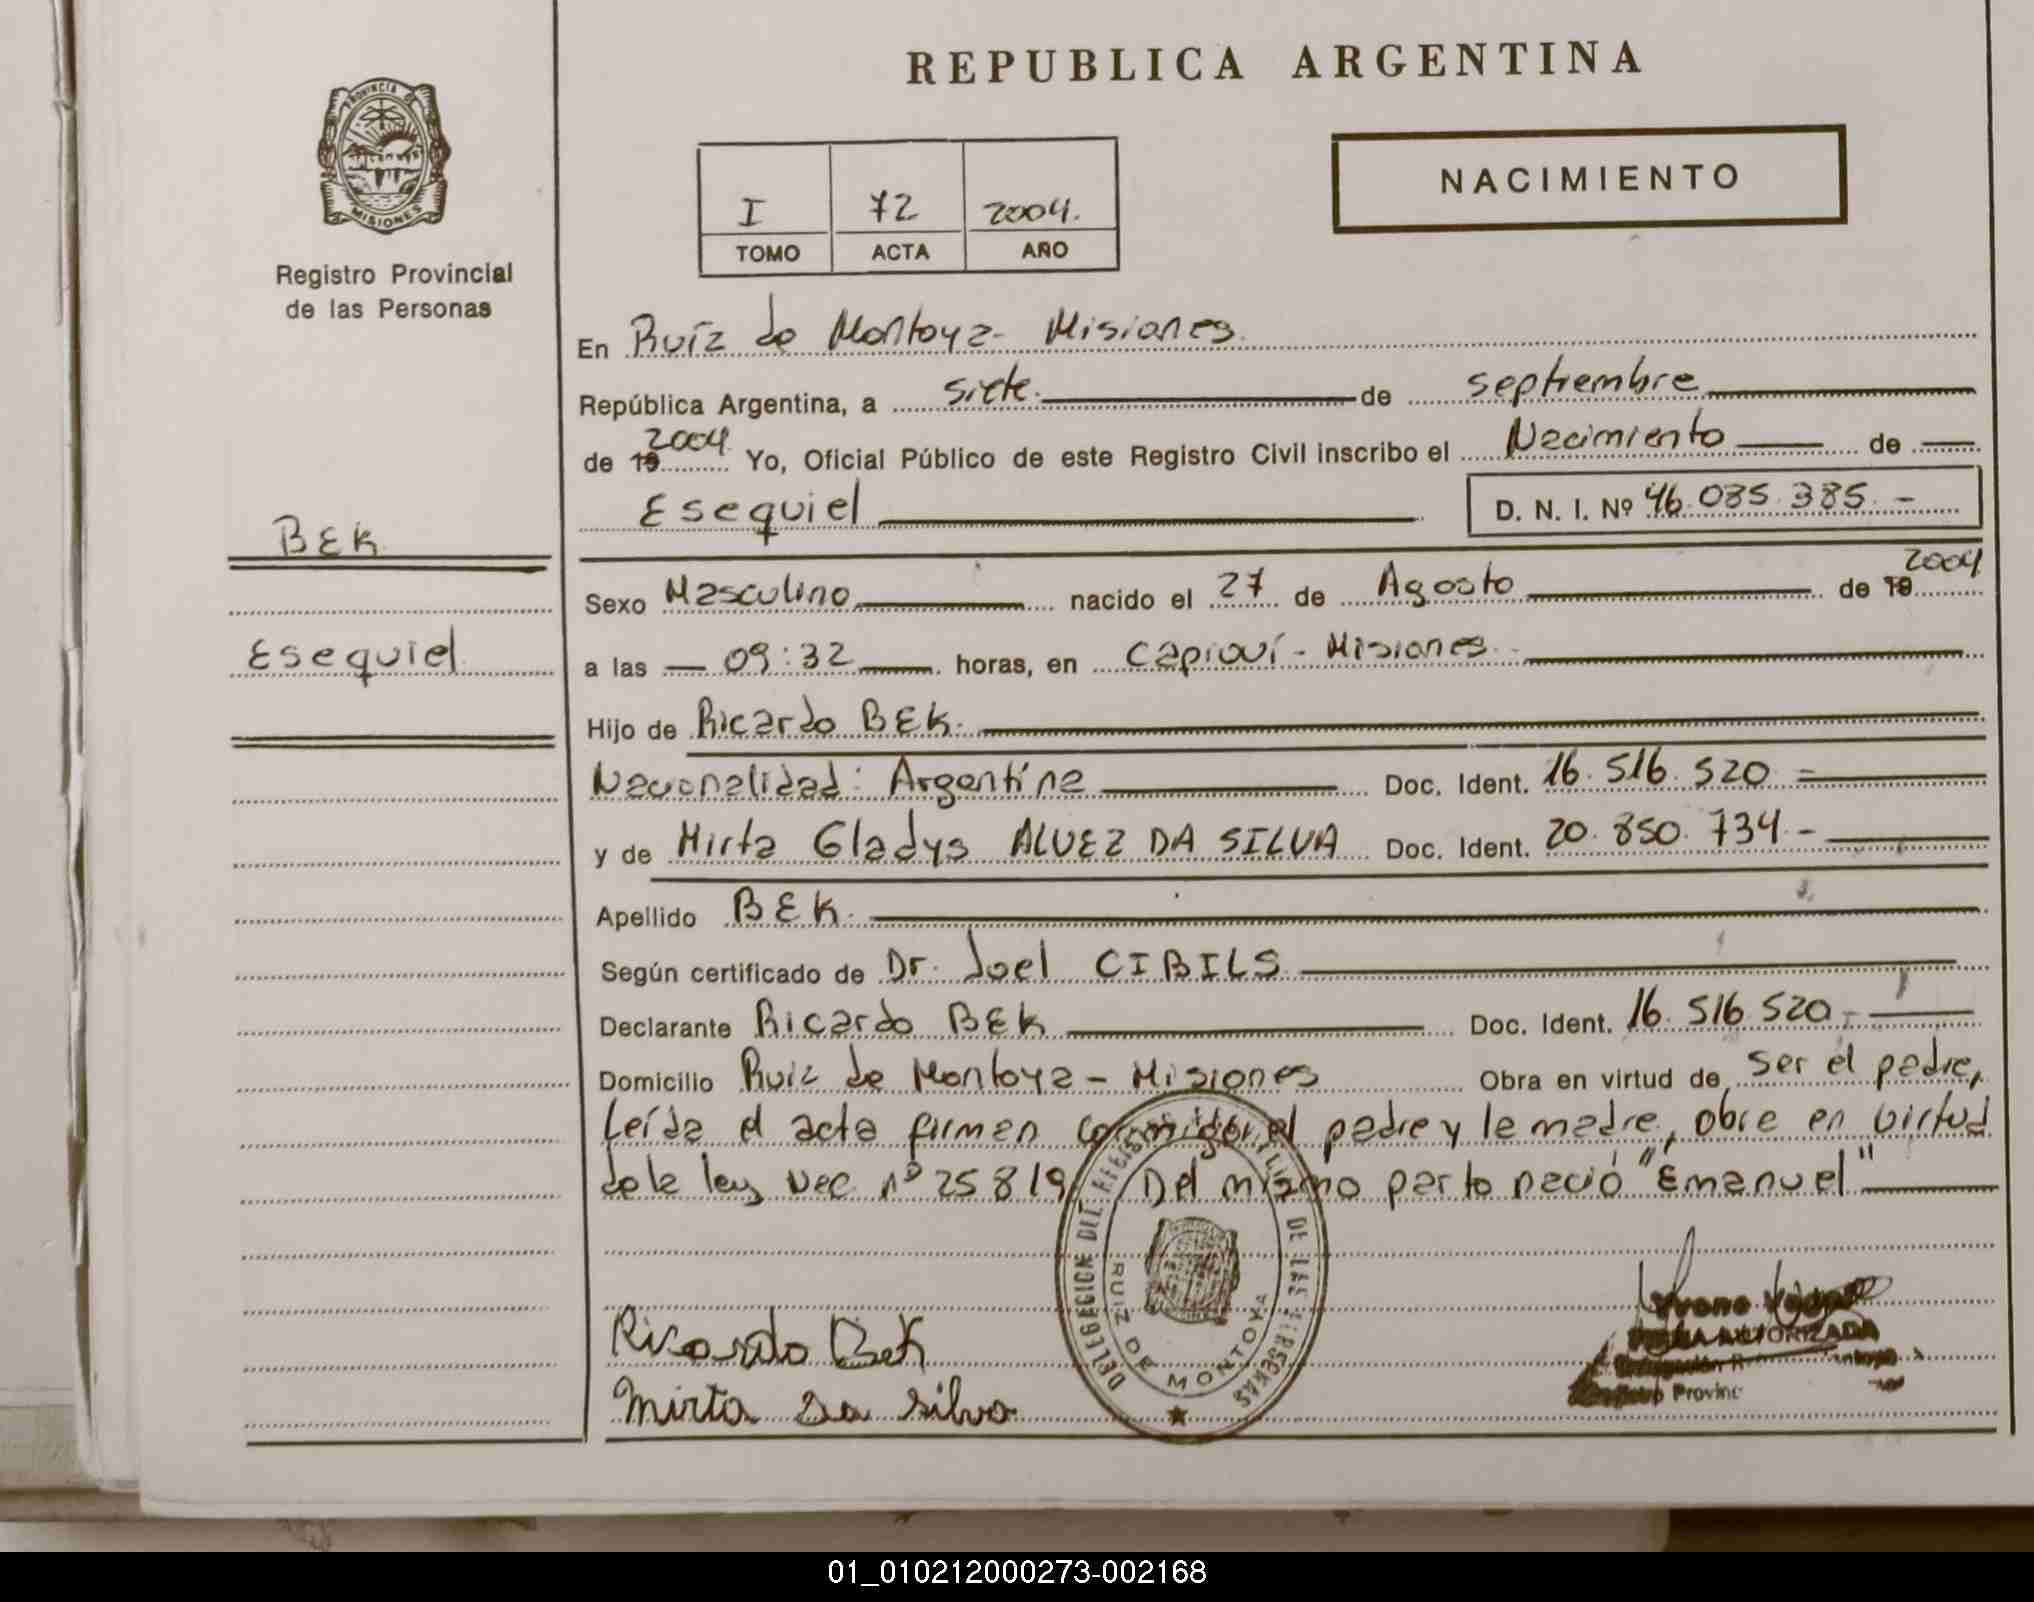 REPUBLICA ARGENTINA
PROVINCIA DE
MISIONES
Registro Provincial
de las Personas
NACIMIENTO
I 72 2004.
TOMO ACTA AÑO
En Ruíz de Montoya - Misiones
República Argentina, a siete de septiembre
de 19 2004 Yo, Oficial Público de este Registro Civil inscribo el Nacimiento de
Esequiel D. N. I. Nº 46.085.385.-
BEK
Esequiel
Sexo Masculino nacido el 27 de Agosto de 19 2004
a las 09:32 horas, en Capioví - Misiones
Hijo de Ricardo BEK.
Nacionalidad: Argentina Doc. Ident. 16.516.520 =
y de Mirta Gladys ALVEZ DA SILVA Doc. Ident. 20.850.734.-
Apellido BEK.
Según certificado de Dr. Joel CIBILS
Declarante Ricardo BEK Doc. Ident. 16.516.520.-
Domicilio Ruiz de Montoya - Misiones Obra en virtud de ser el padre,
Leída el acta firman conmigo el padre y la madre, obra en virtud
de la ley Nac. nº 25819. Del mismo parto nació "Emanuel"
DELEGACION DEL REGISTRO DE LAS PERSONAS
RUIZ DE MONTOYA
Ricardo Bek
Mirta Da Silva
AUTORIZADA
01_010212000273-002168